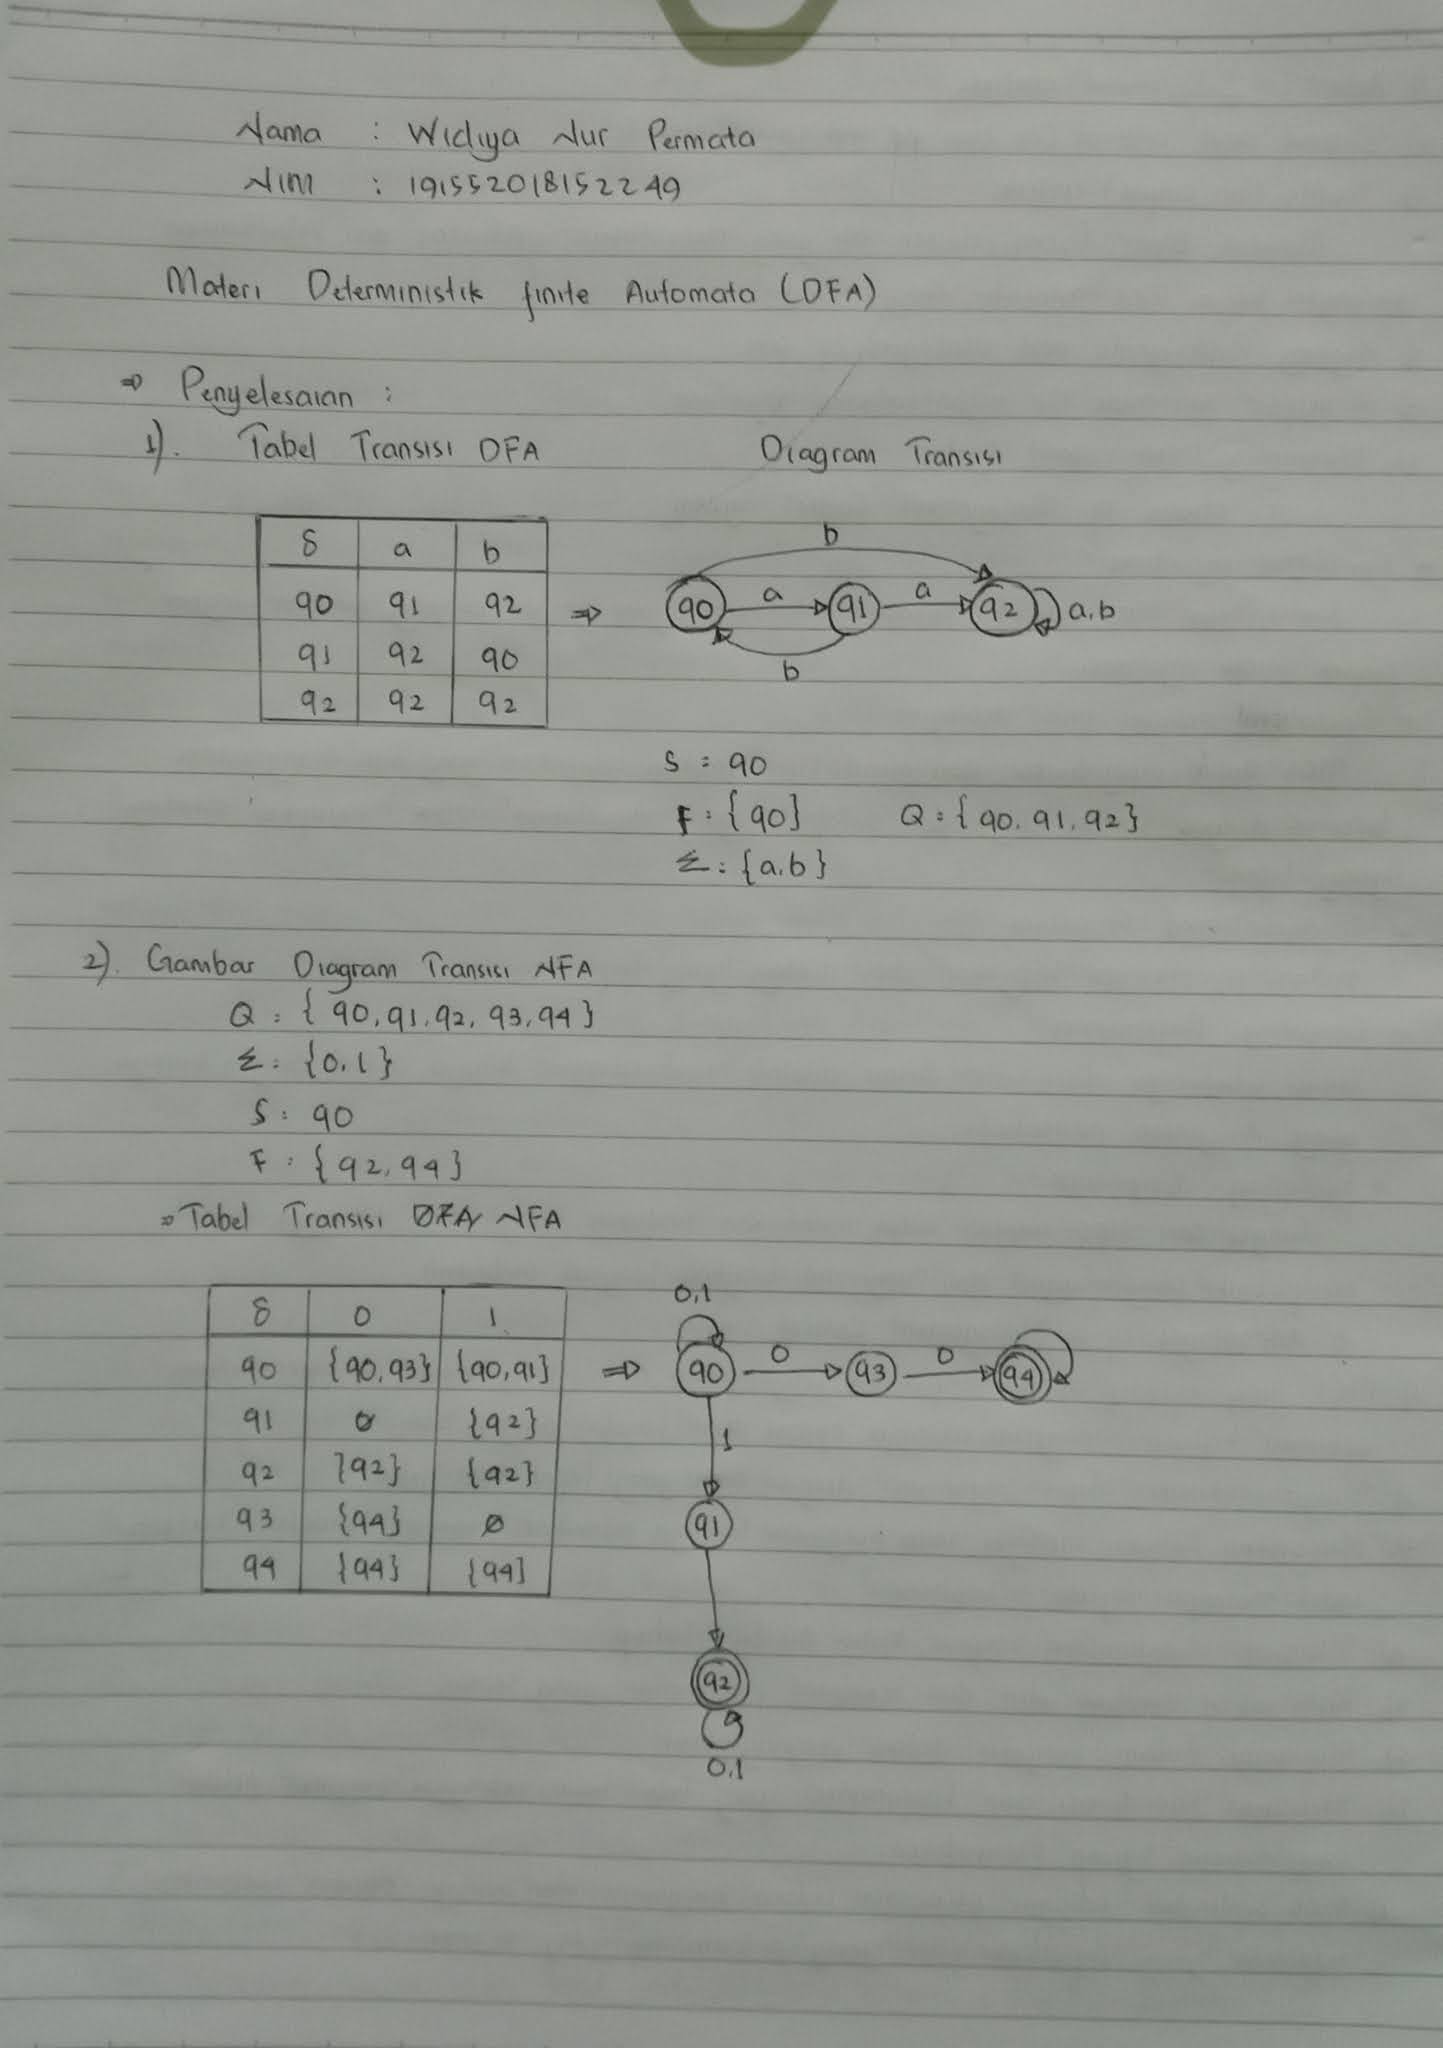 Nama : Widiya Nur Permata
NIM : 191552018152249
Materi Deterministik finite Automata (DFA)
⇒ Penyelesaian :
1). Tabel Transisi DFA Diagram Transisi
δ a b
q0 q1 q2
q1 q2 q0
q2 q2 q2
⇒
b
q0 a q1 a q2 a,b
b
S : q0
F : {q0} Q : {q0, q1, q2}
Σ : {a,b}
2). Gambar Diagram Transisi NFA
Q : {q0, q1, q2, q3, q4}
Σ : {0,1}
S : q0
F : {q2, q4}
⇒ Tabel Transisi DFA NFA
δ 0 1
q0 {q0,q3} {q0,q1}
q1 ø {q2}
q2 {q2} {q2}
q3 {q4} ø
q4 {q4} {q4}
⇒
0,1
q0 0 q3 0 q4
1
q1
q2
0,1